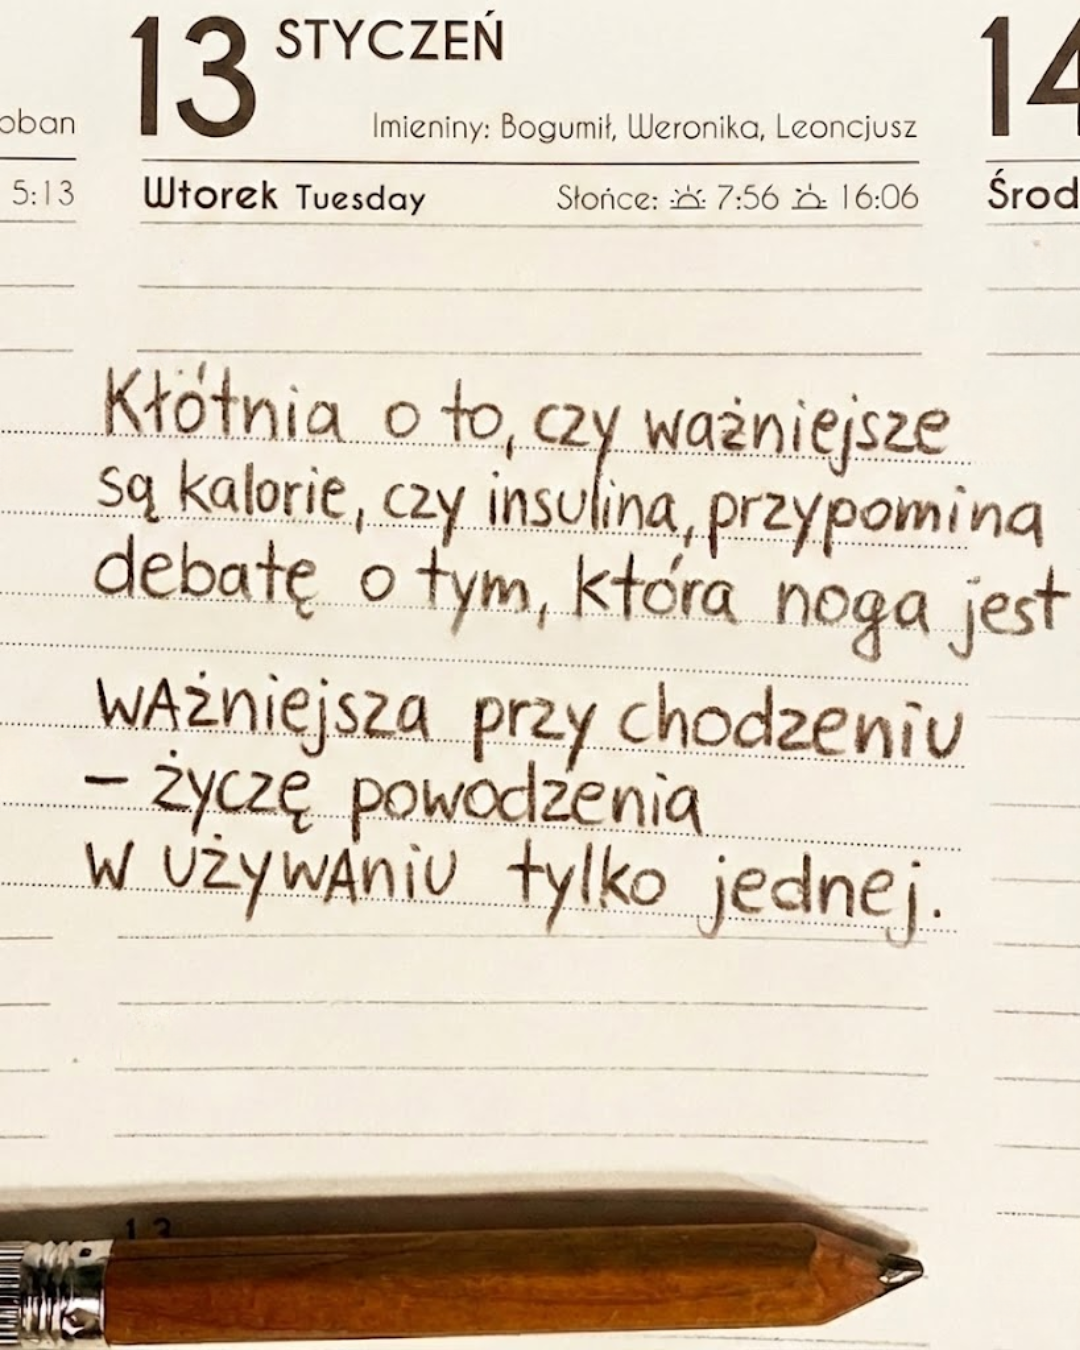 13 STYCZEŃ 14
oban Imieniny: Bogumił, Weronika, Leoncjusz
5:13 Wtorek Tuesday Słońce: 7:56 16:06 Środ
Kłótnia o to, czy ważniejsze
są kalorie, czy insulina, przypomina
debatę o tym, która noga jest
wAżniejsza przy chodzeniu
– życzę powodzenia
w użYwAniu tylko jednej.
13